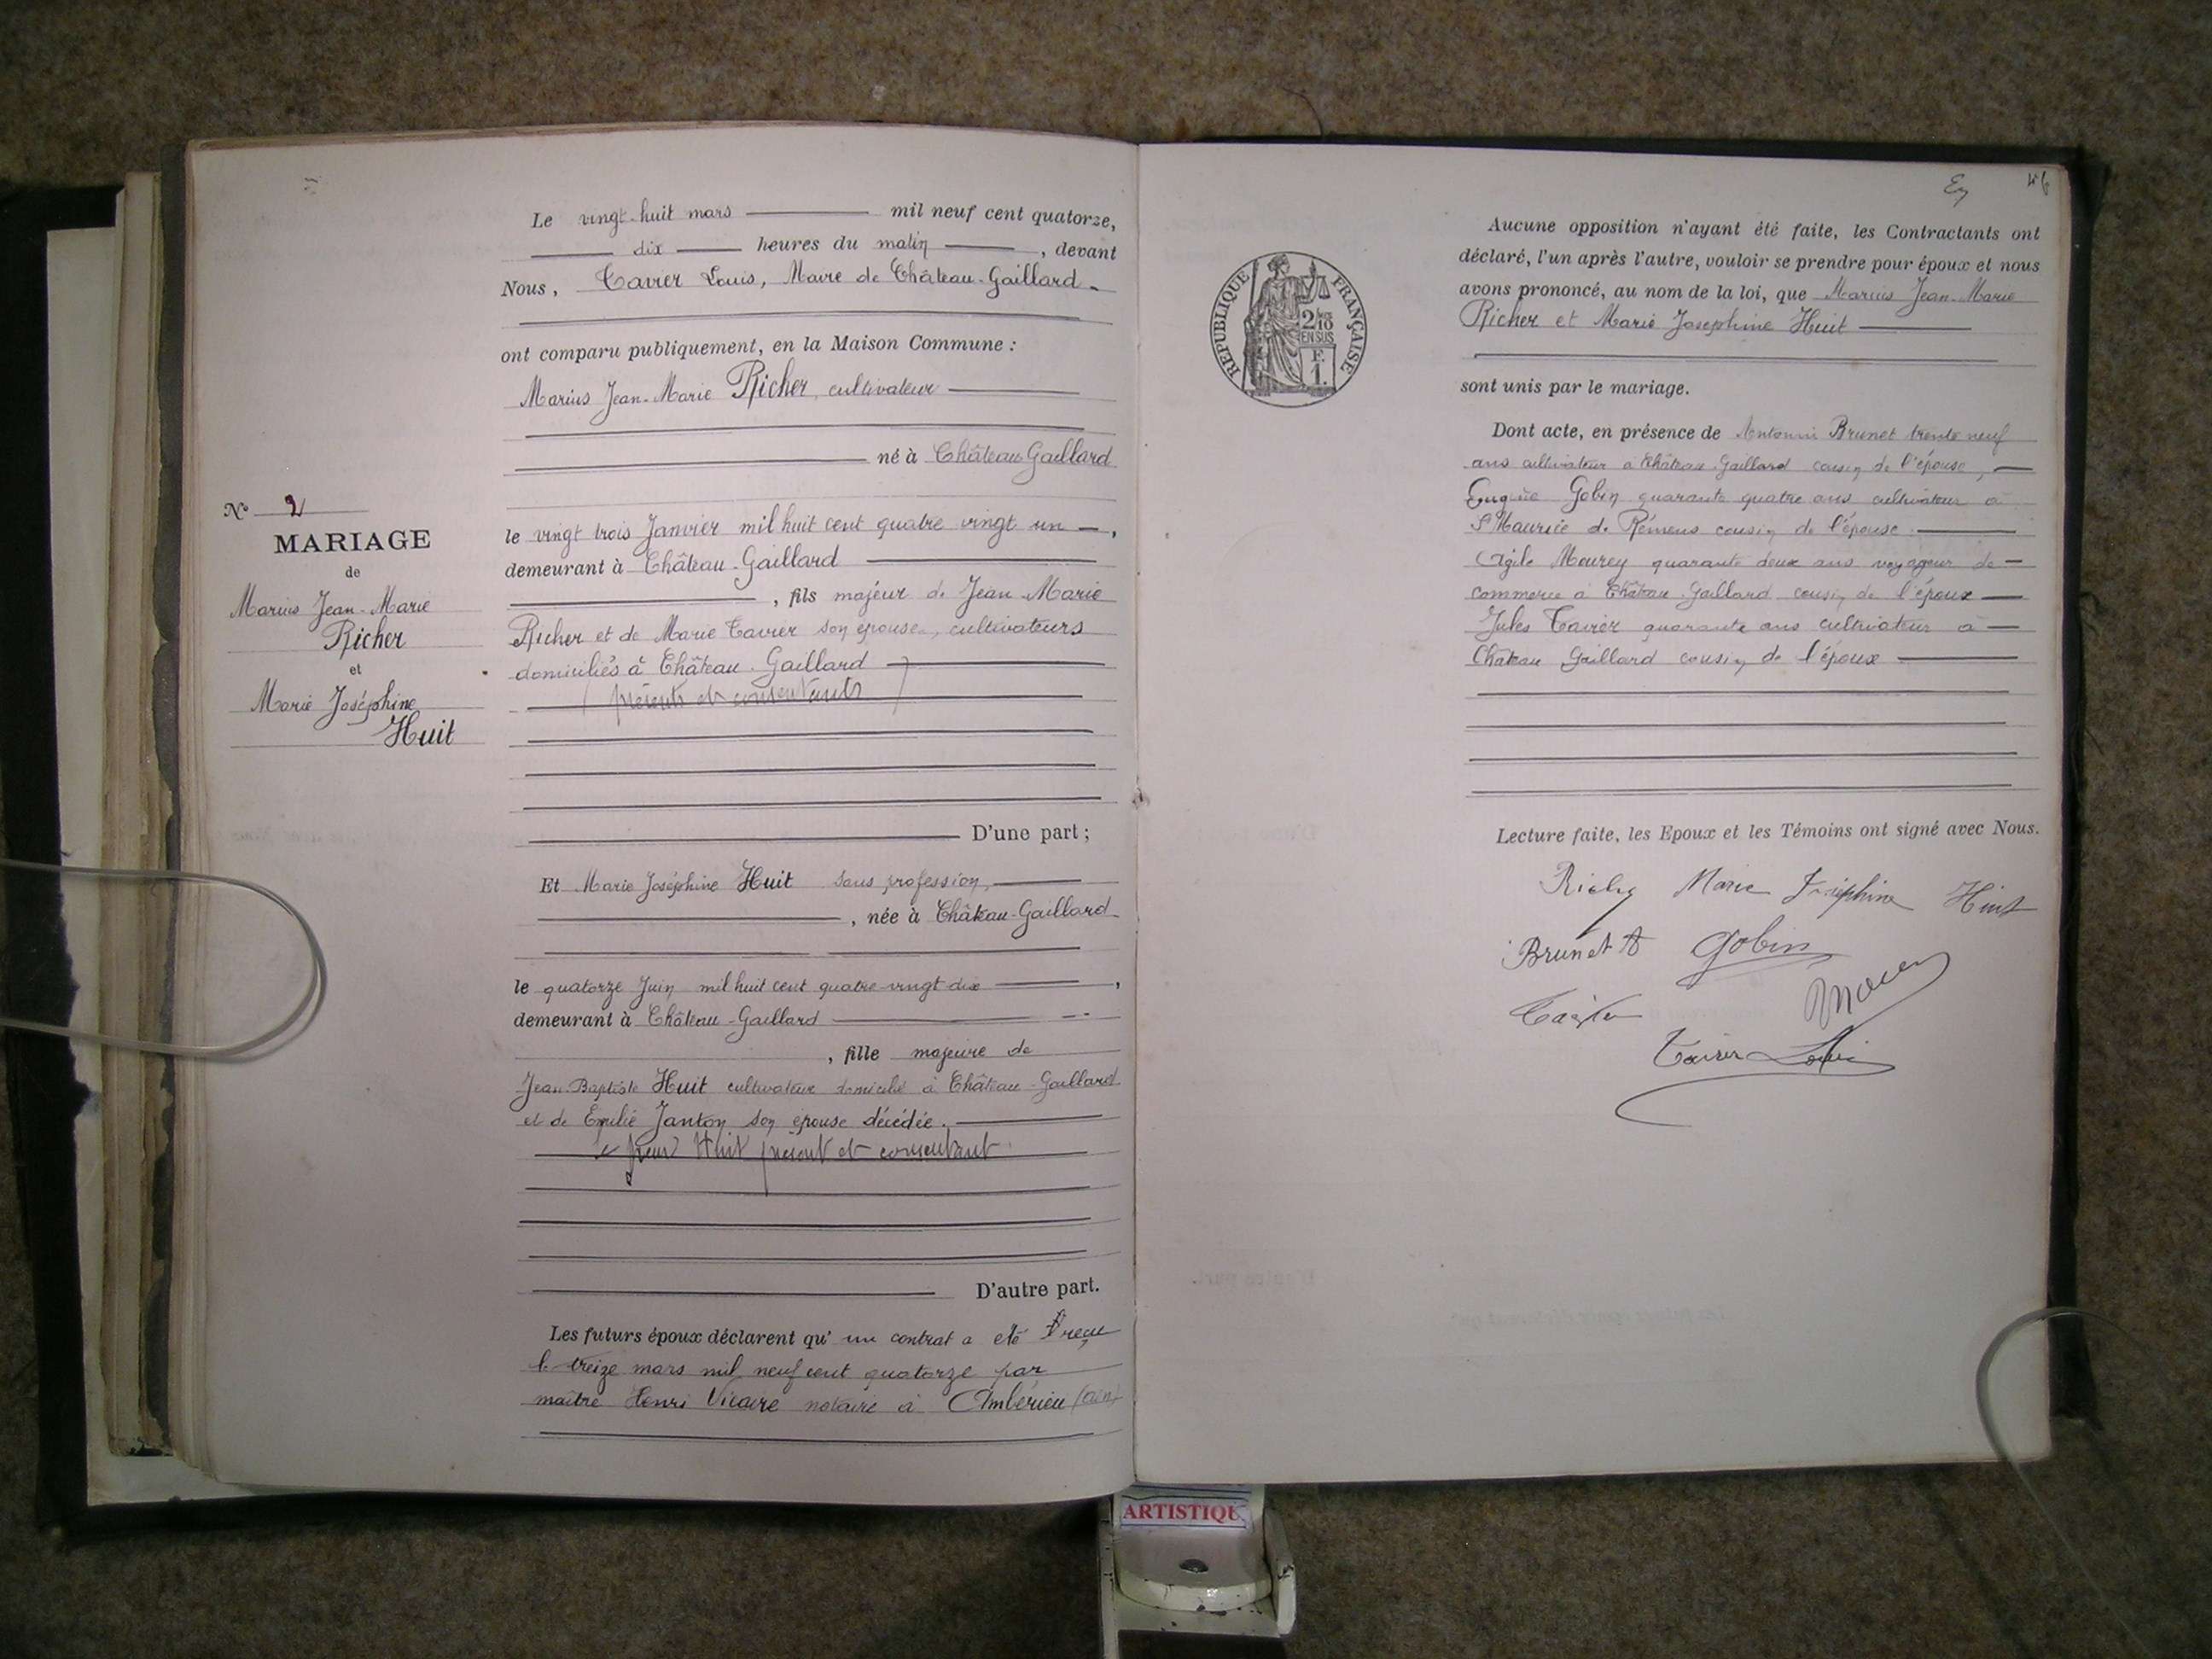 Le vingt-huit mars mil neuf cent quatorze,
dix heures du matin, devant
Nous, Tavier Louis, Maire de Château-Gaillard
ont comparu publiquement, en la Maison Commune :
Marius Jean-Marie Richer, cultivateur
né à Château Gaillard
N° 2
MARIAGE
de
Marius Jean-Marie
Richer
et
Marie Joséphine
Huit
le vingt trois Janvier mil huit cent quatre vingt un,
demeurant à Château-Gaillard
, fils majeur de Jean Marie
Richer et de Marie Tavier son épouse, cultivateurs
domiciliés à Château-Gaillard
présents et consentants
D'une part ;
Et Marie Joséphine Huit sans profession,
, née à Château-Gaillard
le quatorze Juin mil huit cent quatre-vingt-dix,
demeurant à Château-Gaillard
, fille majeure de
Jean-Baptiste Huit cultivateur domicilié à Château-Gaillard
et de Emilie Janton son épouse décédée.
le sieur Huit présent et consentant
D'autre part.
Les futurs époux déclarent qu'un contrat a eté reçu
le treize mars mil neuf cent quatorze par
maître Henri Vicaire notaire à Ambérieu (Ain)
46
REPUBLIQUE FRANÇAISE
2/10
EN SUS
F.
1.
Aucune opposition n'ayant été faite, les Contractants ont
déclaré, l'un après l'autre, vouloir se prendre pour époux et nous
avons prononcé, au nom de la loi, que Marius Jean-Marie
Richer et Marie Josephine Huit
sont unis par le mariage.
Dont acte, en présence de Antonin Brunet trente neuf
ans cultivateur à Château-Gaillard cousin de l'épouse,
Eugène Gobin quarante quatre ans cultivateur à
St Maurice de Rémens cousin de l'épouse
Agile Mourey quarante deux ans voyageur de
commerce à Château-Gaillard cousin de l'époux
Jules Tavier quarante ans cultivateur à
Château Gaillard cousin de l'époux
Lecture faite, les Epoux et les Témoins ont signé avec Nous.
Richer Marie Joséphine Huit
Brunet A Gobin
Tavier Louis
ARTISTIQU